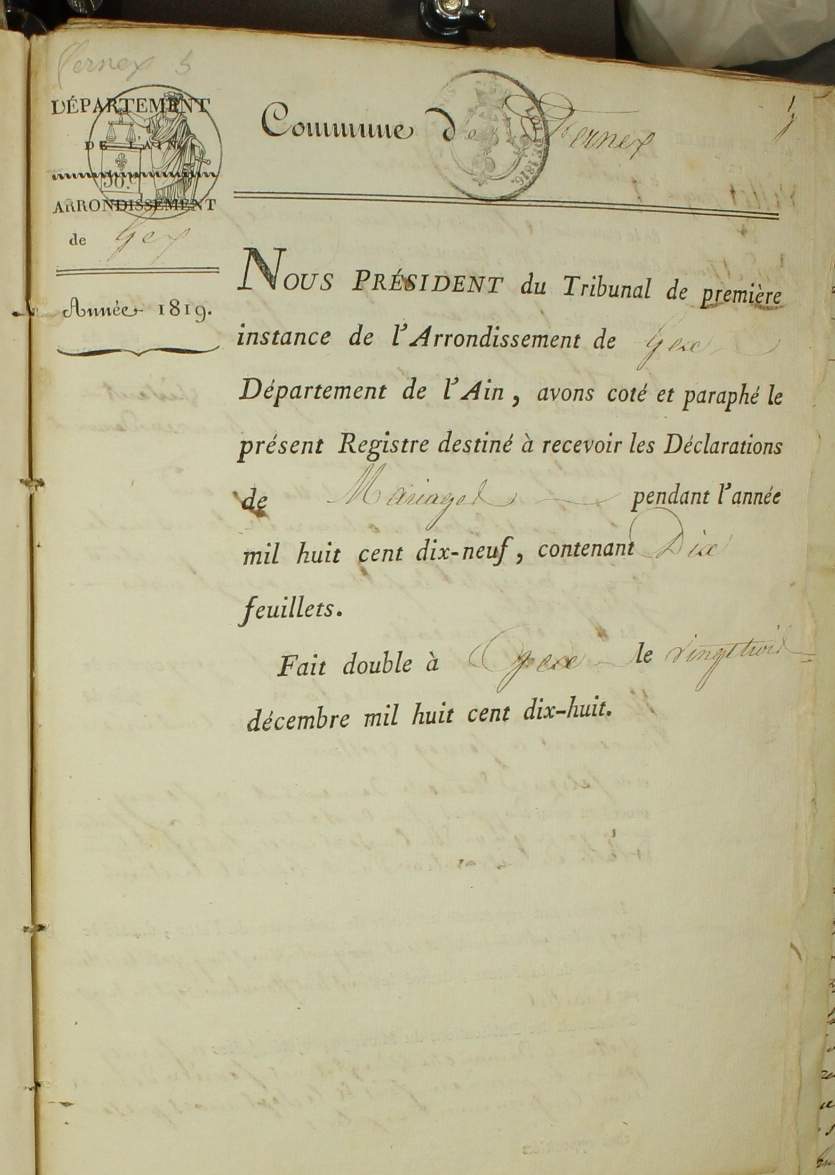 Fernex 5
DÉPARTEMENT
DE L'AIN
ARRONDISSEMENT
de Gex
Année 1819.
Commune de Fernex
NOUS PRÉSIDENT du Tribunal de première
instance de l'Arrondissement de Gex
Département de l'Ain, avons coté et paraphé le
présent Registre destiné à recevoir les Déclarations
de Mariages pendant l'année
mil huit cent dix-neuf, contenant Dix
feuillets.
Fait double à Gex le vingt trois
décembre mil huit cent dix-huit.